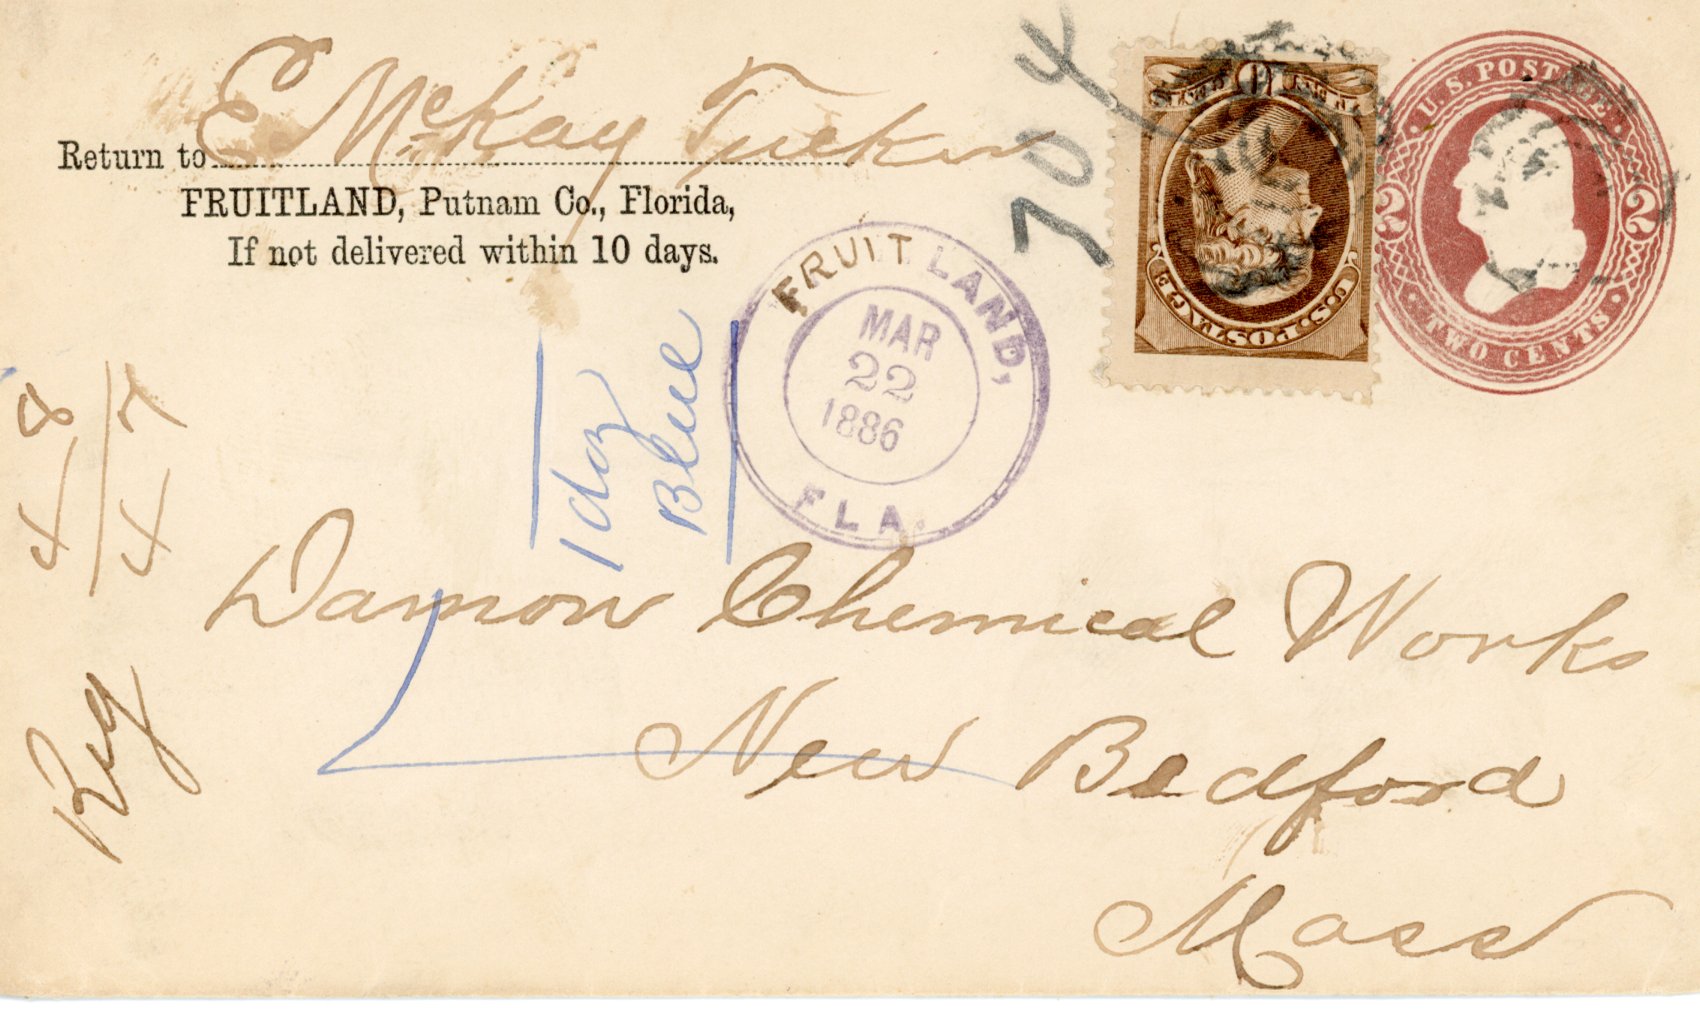 E McKay Tucker
Return to
FRUITLAND, Putnam Co., Florida,
If not delivered within 10 days.
704
TEN 10 CENTS
U.S. POSTAGE
U.S. POSTAGE
2 2
TWO CENTS
FRUITLAND,
MAR
22
1886
FLA.
1 doz
Blue
48/47
Reg
Damon Chemical Works
New Bedford
Mass